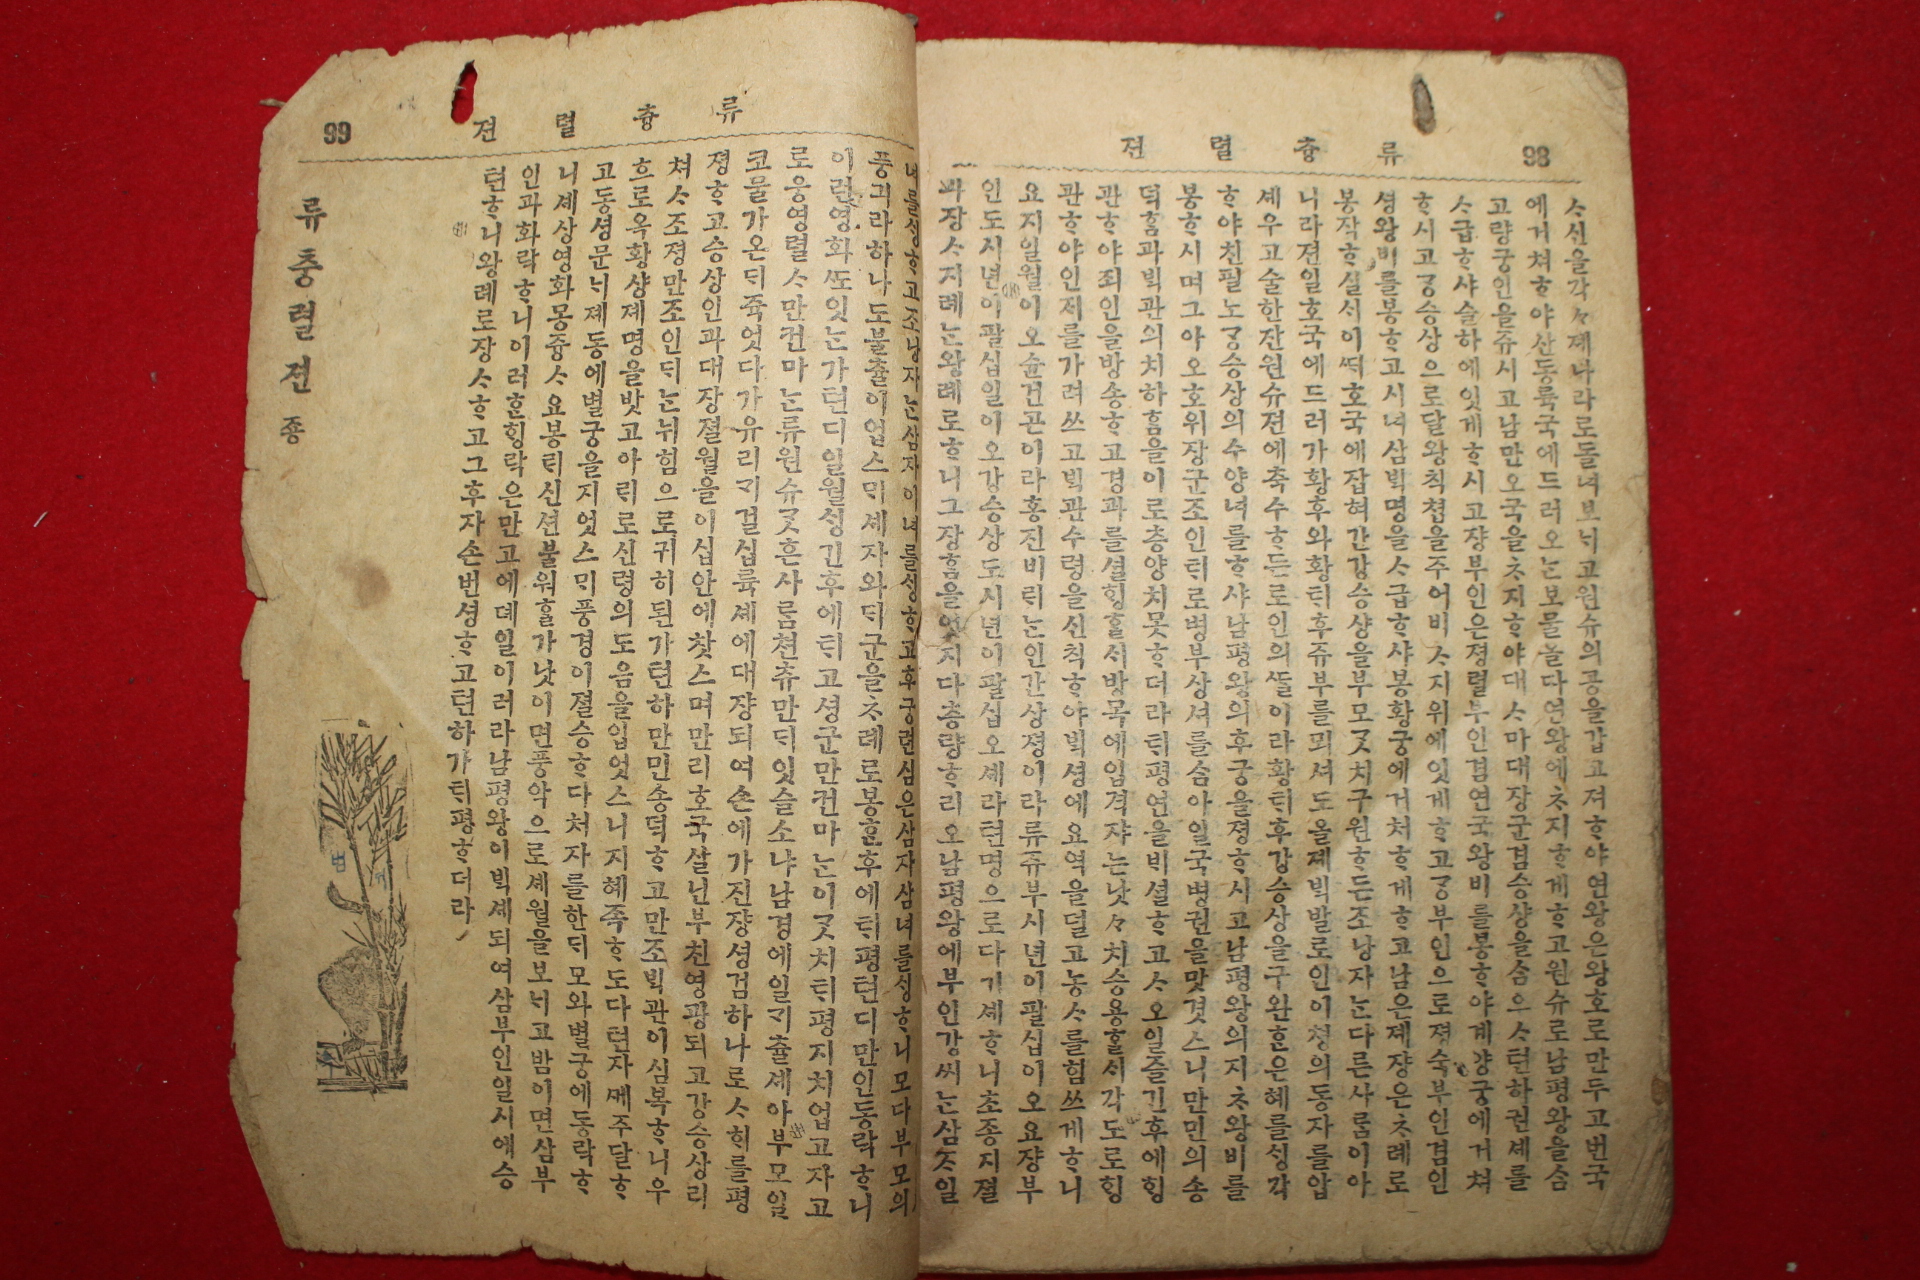 98
류츙렬젼
ᄉᆞ신을각々졔나라로돌녀보ᄂᆡ고원슈의공을갑고져ᄒᆞ야연왕은왕호로만두고번국
에거쳐ᄒᆞ야산동륙국에드러오ᄂᆞᆫ보물놀다연왕에ᄎᆞ지ᄒᆞ게ᄒᆞ고원슈로남평왕을ᄉᆞᆷ
고량궁인을쥬시고남만오국을ᄎᆞ지ᄒᆞ야대ᄉᆞ마대장군겸승샹을ᄉᆞᆷ으ᄉᆞ텬하권셰를
ᄉᆞ급ᄒᆞ샤슬하에잇게ᄒᆞ시고쟝부인은졍렬부인겸연국왕비를봉ᄒᆞ야계량궁에거쳐
ᄒᆞ시고강승상으로달왕칙쳡을주어비ᄉᆞ지위에잇게ᄒᆞ고강부인으로졍슉부인겸인
셩왕비를봉ᄒᆞ고시녀삼ᄇᆡᆨ명을ᄉᆞ급ᄒᆞ샤봉황궁에거쳐ᄒᆞ게ᄒᆞ고남은졔쟝은ᄎᆞ례로
봉작ᄒᆞ실ᄉᆡ이ᄯᅢ호국에잡혀간강승샹을부모ᄀᆞᆺ치구원ᄒᆞ든조낭자ᄂᆞᆫ다른사ᄅᆞᆷ이아
니라젼일호국에드러가황후와황ᄐᆡ후쥬부를뫼셔도올졔ᄇᆡᆨ발로인이쳥의동자를압
셰우고술한잔원슈젼에축수ᄒᆞ든로인의ᄯᆞᆯ이라황ᄐᆡ후강승상을구완ᄒᆞᆫ은혜를ᄉᆡᆼ각
ᄒᆞ야친필노강승상의수양녀를ᄒᆞ샤남평왕의후궁을졍ᄒᆞ시고남평왕의지ᄎᆞ왕비를
봉ᄒᆞ시며그아오호위장군조인ᄐᆡ로병부상셔를ᄉᆞᆷ아일국병권을맛겻스니만민의송
덕ᄒᆞᆷ과ᄇᆡᆨ관의치하ᄒᆞᆷ을이로층양치못ᄒᆞ더라ᄐᆡ평연을ᄇᆡ셜ᄒᆞ고ᄉᆞ오일즐긴후에ᄒᆡᆼ
관ᄒᆞ야죄인을방송ᄒᆞ고경과를셜ᄒᆡᆼᄒᆞᆯᄉᆡ방목에임격쟈ᄂᆞᆫ낫々치승용ᄒᆞᆯᄉᆡ각도로ᄒᆡᆼ
관ᄒᆞ야인ᄌᆡ를가려쓰고ᄇᆡᆨ관수령을신칙ᄒᆞ야ᄇᆡᆨ셩에요역을덜고농ᄉᆞ를힘쓰게ᄒᆞ니
요지일월이오슌건곤이라홍진비ᄅᆡᄂᆞᆫ인간상졍이라류쥬부시년이팔십이오요쟝부
인도시년이팔십일이오강승상도시년이팔십오셰라텬명으로다기셰ᄒᆞ니초종지졀
과장ᄉᆞ지례ᄂᆞᆫ왕례로ᄒᆞ니그장ᄒᆞᆷ을엇지다층량ᄒᆞ리오남평왕에부인강씨ᄂᆞᆫ삼ᄌᆞ일
99
류츙렬젼
녀를ᄉᆡᆼᄒᆞ고조낭자ᄂᆞᆫ삼자이녀를ᄉᆡᆼᄒᆞ고후궁련심은삼자삼녀를ᄉᆡᆼᄒᆞ니모다부모의
풍ᄀᆡ라하나도불쵸이업스ᄆᆡ셰자와ᄃᆡ군을ᄎᆞ례로봉ᄒᆞᆫ후에ᄐᆡ평텬디만인동락ᄒᆞ니
이런영화ᄯᅩ잇ᄂᆞᆫ가텬디일월ᄉᆡᆼ긴후에ᄐᆡ고셩군만컨마ᄂᆞᆫ이ᄀᆞᆺ치ᄐᆡ평지치업고자고
로웅영렬ᄉᆞ만컨마ᄂᆞᆫ류원슈ᄀᆞᆺ흔사ᄅᆞᆷ쳔츄만ᄃᆡ잇슬소냐남경에일ᄀᆡ츌셰아부모일
코물가온ᄃᆡ쥭엇다가유리ᄀᆡ걸십륙셰에대쟝되여손에가진쟝셩검하나로ᄉᆞᄒᆡ를평
졍ᄒᆞ고승상인과대장졀월을이십안에찻스며만리호국살닌부친영광되고강승상리
쳐ᄉᆞ조졍만조인ᄃᆡᄂᆞᆫ뉘힘으로귀히된가텬하만민송덕ᄒᆞ고만조ᄇᆡᆨ관이심복ᄒᆞ니우
흐로옥황샹졔명을밧고아ᄅᆡ로신령의도음을입엇스니지혜족ᄒᆞ도다텬자ᄭᅦ주달ᄒᆞ
고동셩문ᄂᆡ졔동에별궁을지엇스ᄆᆡ풍경이졀승ᄒᆞ다쳐자를한ᄃᆡ모와별궁에동락ᄒᆞ
니셰상영화몽즁ᄉᆞ요봉ᄅᆡ신션불워ᄒᆞᆯ가낫이면풍악으로셰월을보ᄂᆡ고밤이면삼부
인과화락ᄒᆞ니이러ᄒᆞᆫᄒᆡᆼ락은만고에뎨일이러라남평왕이ᄇᆡᆨ셰되여삼부인일시에승
텬ᄒᆞ니왕례로장ᄉᆞᄒᆞ고그후자손번셩ᄒᆞ고텬하가ᄐᆡ평ᄒᆞ더라
류충렬젼 죵